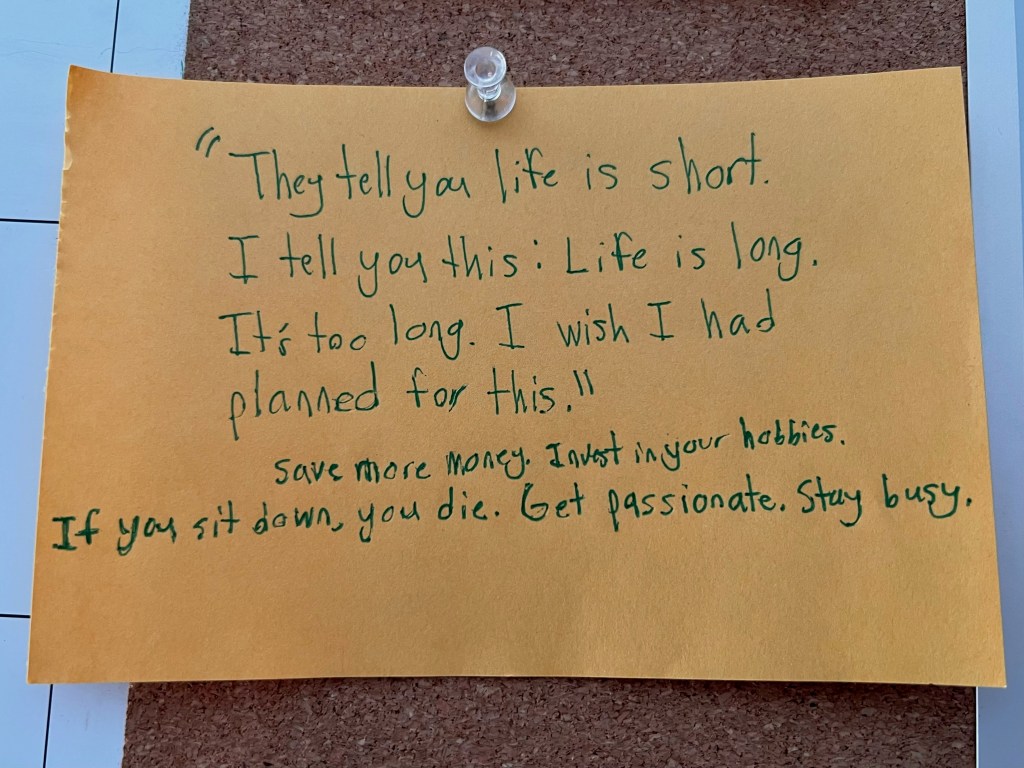 "They tell you life is short.
I tell you this: Life is long.
It's too long. I wish I had
planned for this."
Save more money. Invest in your hobbies.
If you sit down, you die. Get passionate. Stay busy.